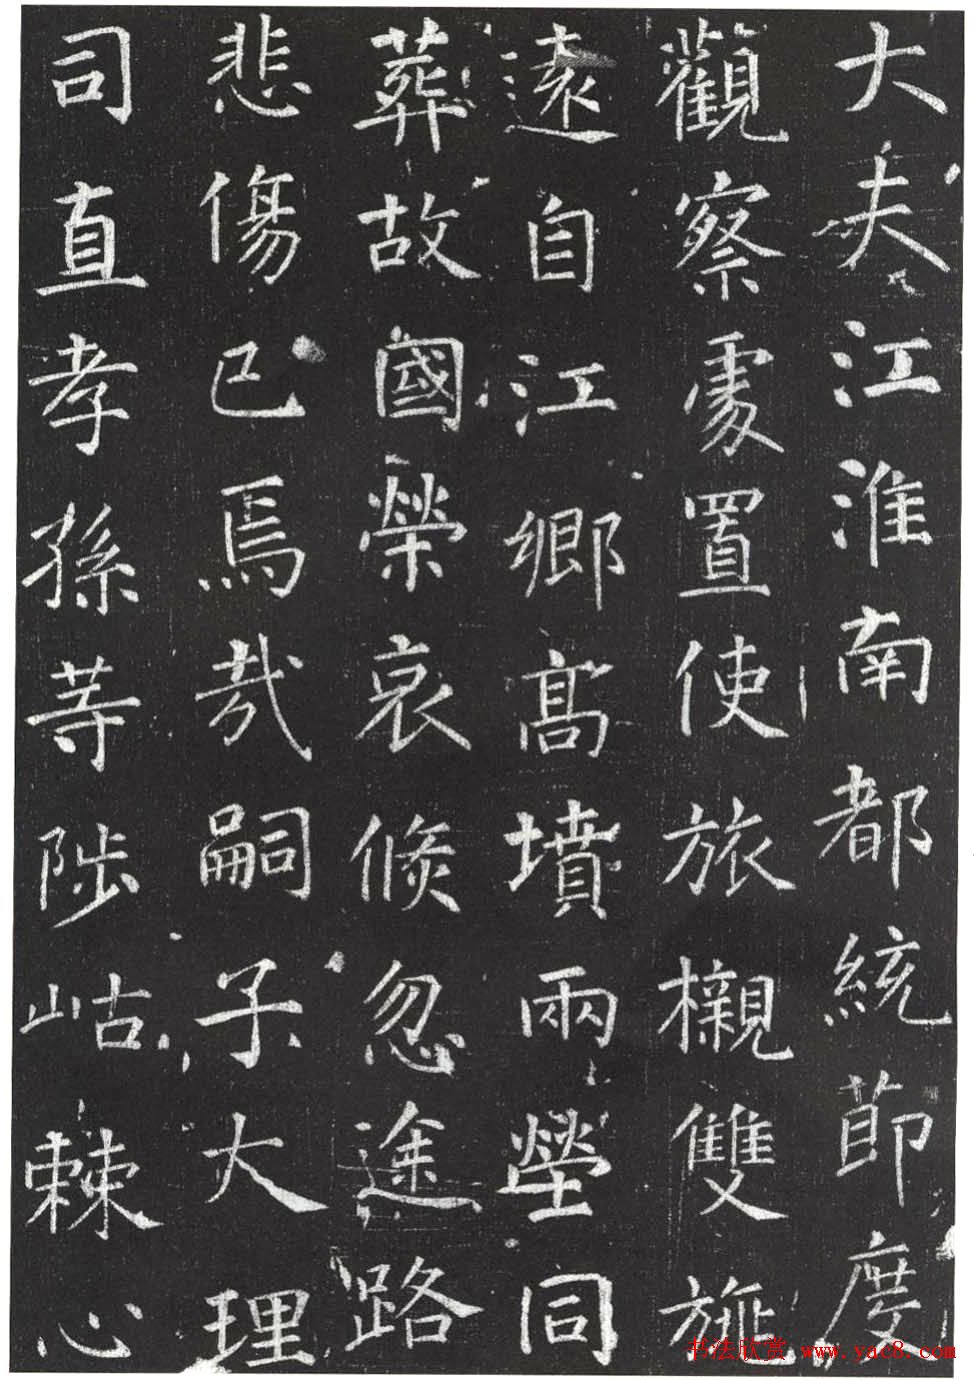 大夫江淮南都統節度
觀察處置使旅櫬雙旐
遠自江鄉高墳兩塋同
葬故國榮哀倏忽途路
悲傷已焉哉嗣子大理
司直孝孫等陟岵棘心
书法欣赏 www.yac8.com